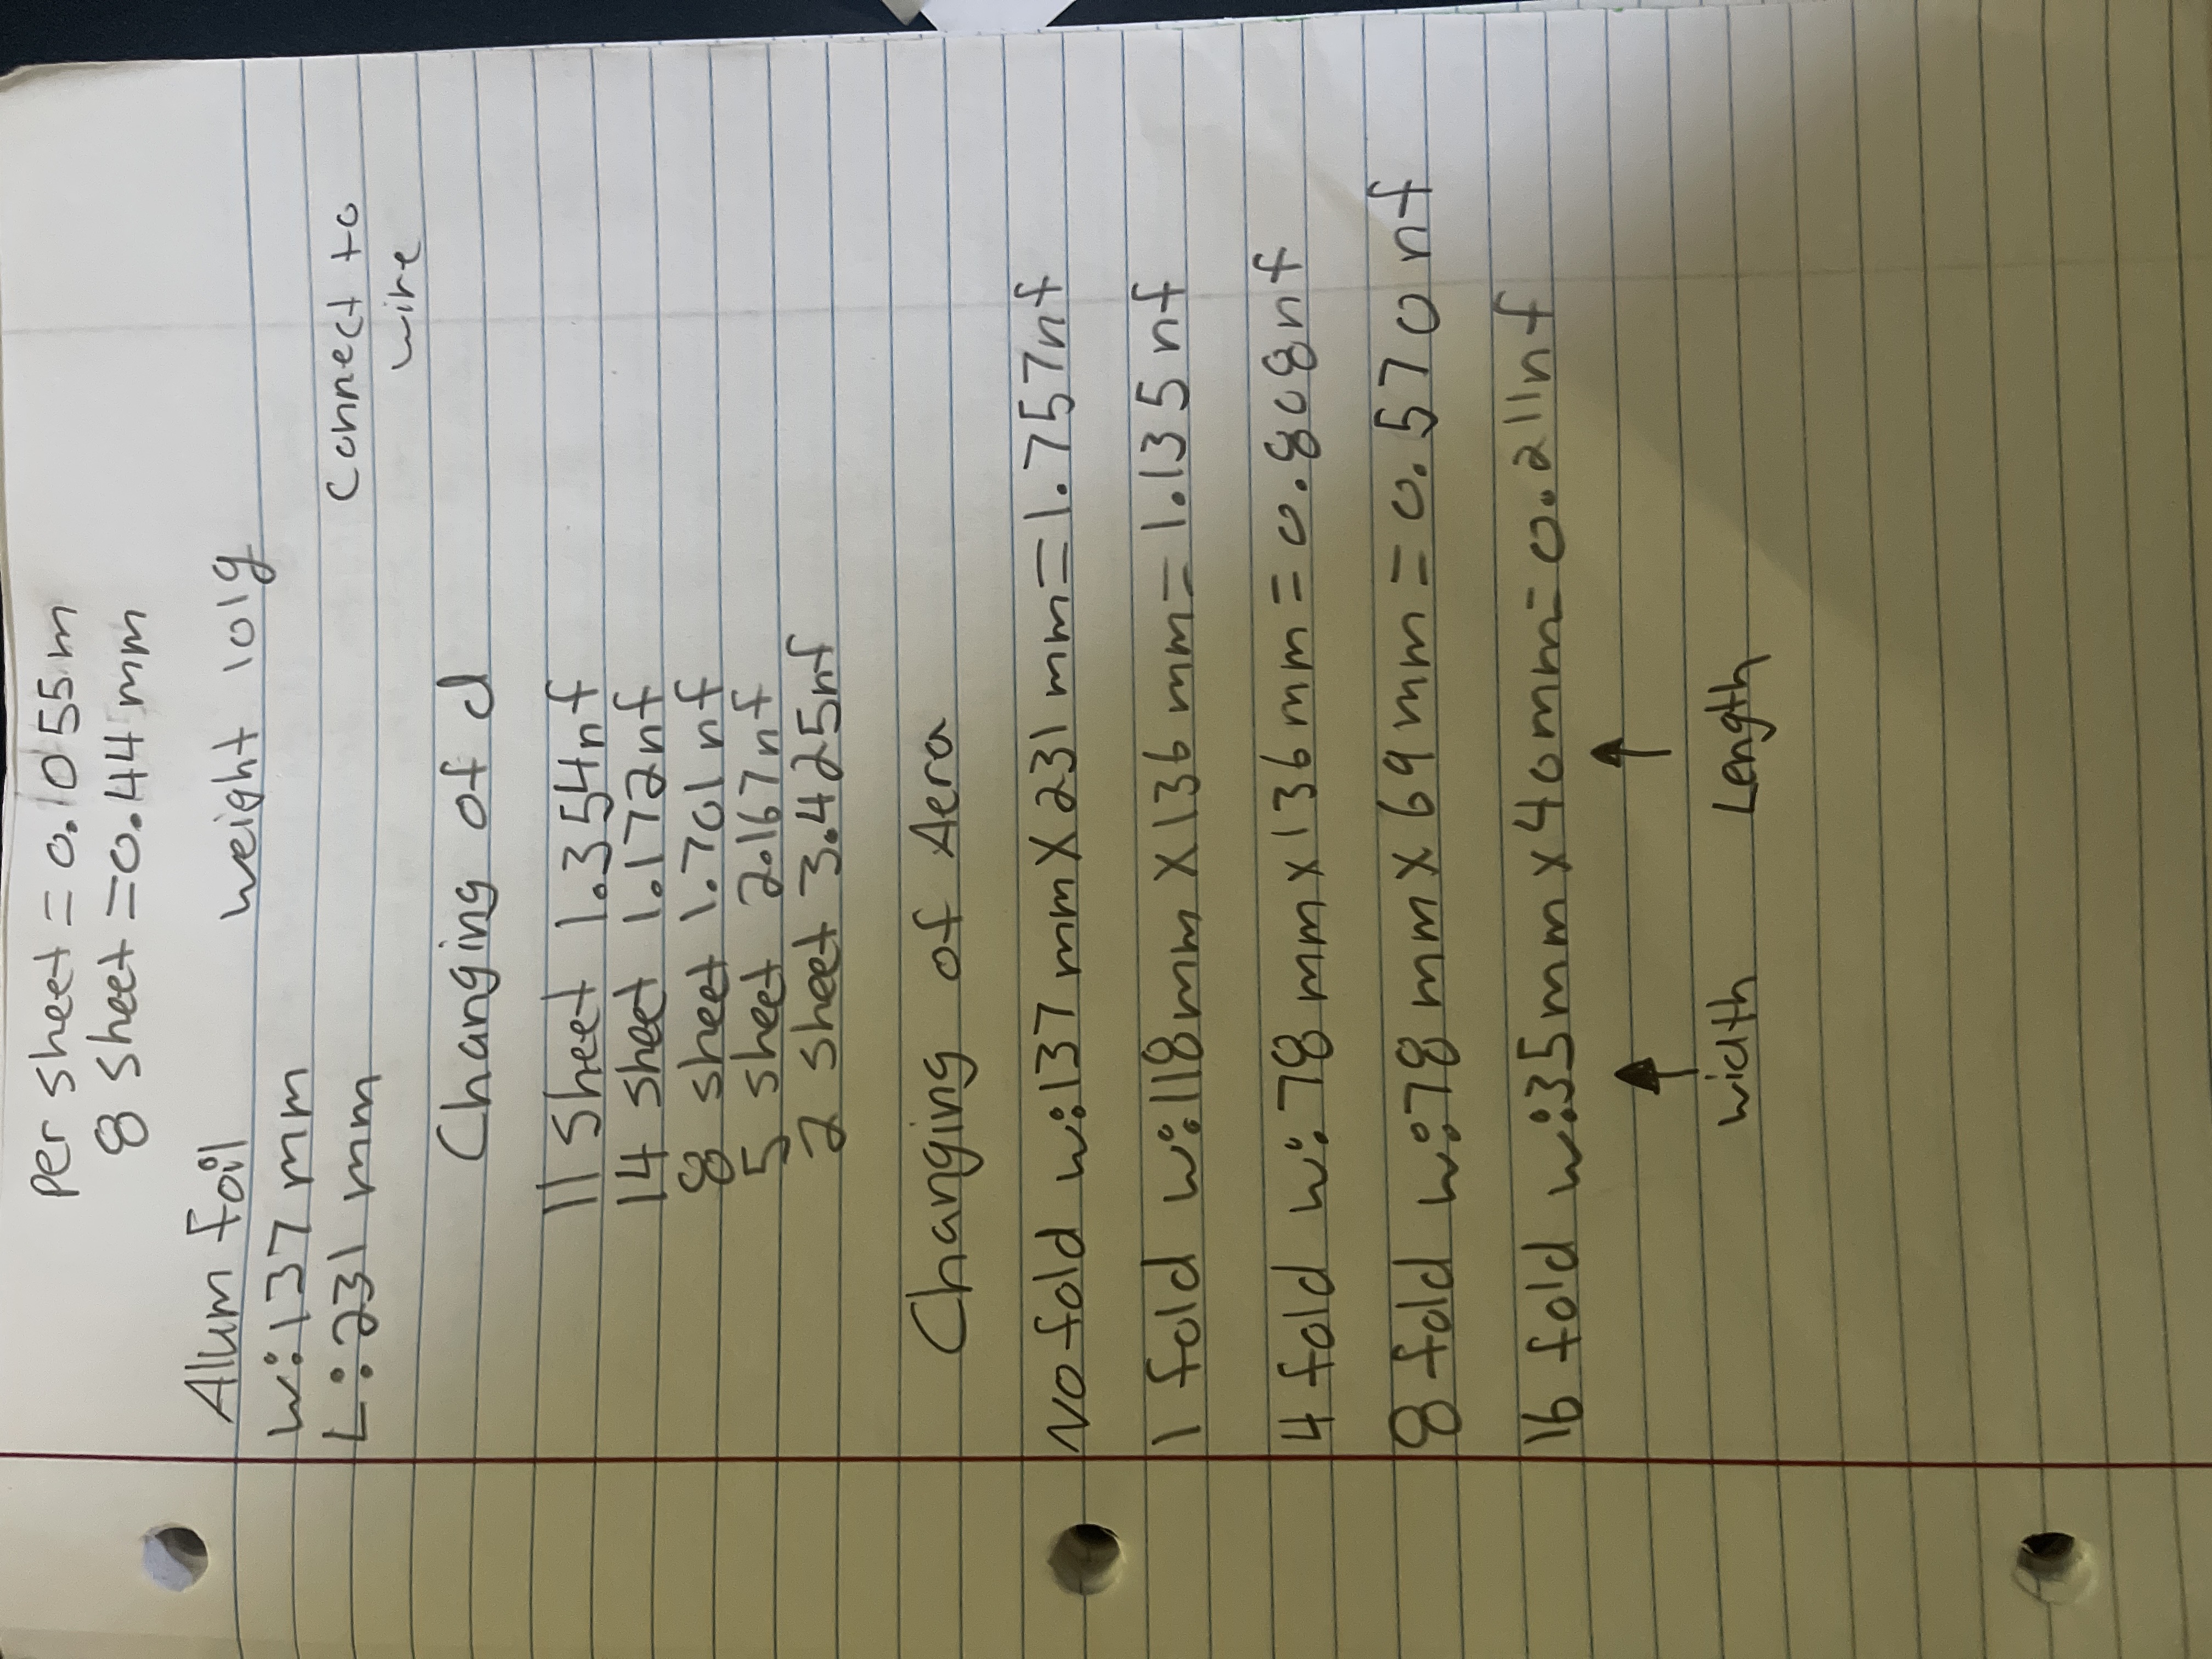 per sheet = 0.1055 m
8 sheet = 0.44 mm
Alum foil weight 101g
W: 137 mm
L: 231 mm
Connect to
wire
Changing of d
11 sheet 1.354nf
14 sheet 1.172nf
8 sheet 1.701 nf
5 sheet 2.167nf
2 sheet 3.425nf
Changing of Aera
No fold w: 137 mm X 231 mm = 1.757nf
1 fold w: 118mm X 136 mm = 1.135 nf
4 fold w: 78 mm x 136 mm = 0.808nf
8 fold w: 78 mm x 69 mm = 0.570 nf
16 fold w: 35mm x 40mm = 0.211nf
width Length